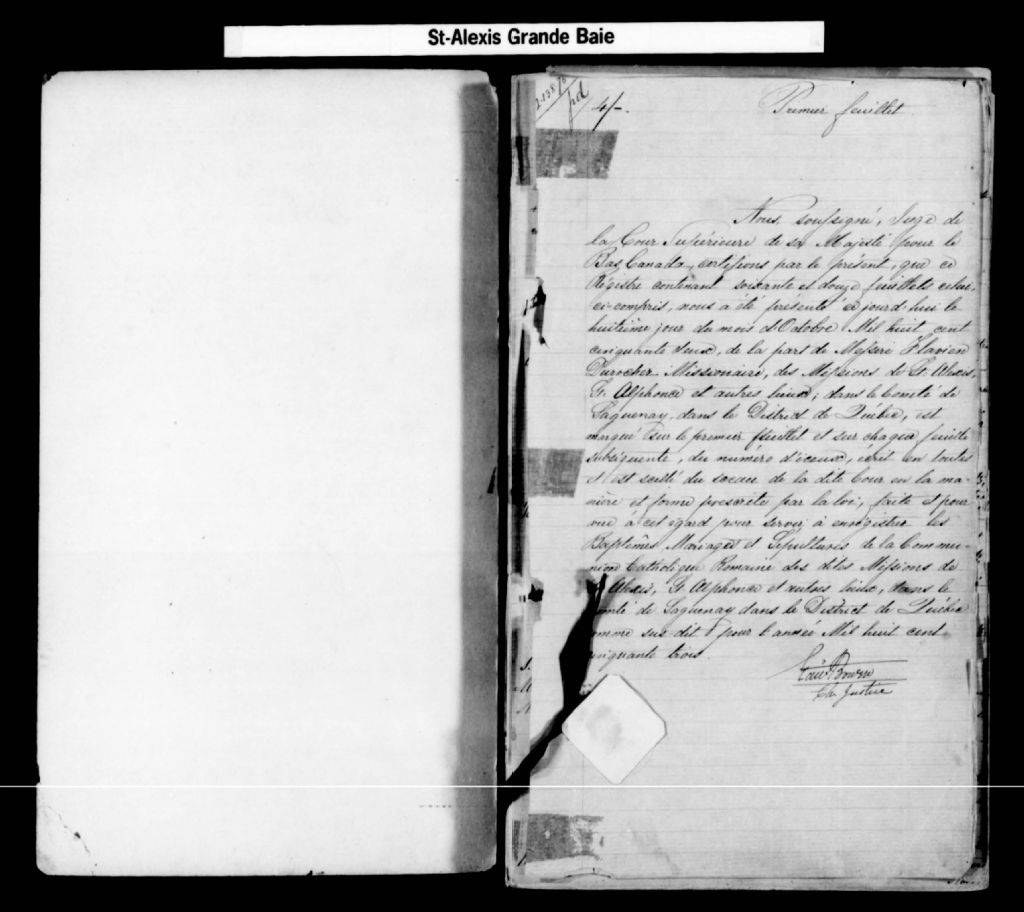 St-Alexis Grande Baie
4/-.
Premier feuillet.
Nous, soussigné, Juge de
la Cour Supérieure de sa Majesté pour le
Bas Canada, certifions par le présent, que ce
Régistre contenant soixante et douze feuillets celui
ci-compris, nous a été présenté ce jourd'hui le
huitième jour du mois d'Octobre Mil huit cent
cinquante deux, de la part de Messire Flavien
Durocher Missionaire, des Missions de St. Alexis,
St. Alphonce et autres lieux; dans le Comté de
Saguenay, dans le District de Québec, est
marqué sur le premier feuillet et sur chaque feuille
subséquente, du numéro d'iceux, écrit en toutes
et est scellé du sceau de la dite Cour en la ma-
nière et forme prescrite par la loi, faite et pour
vue à cet égard pour servir à enregistrer les
Baptêmes, Mariages et Sépultures de la Commu-
nion Catholique Romaine des dites Missions de
Alexis, St. Alphonce et autres lieux, dans le
omté de Saguenay dans le District de Québec
omme sus dit pour l'année Mil huit cent
inquante trois.
Edw Bowen
Ch. Justice